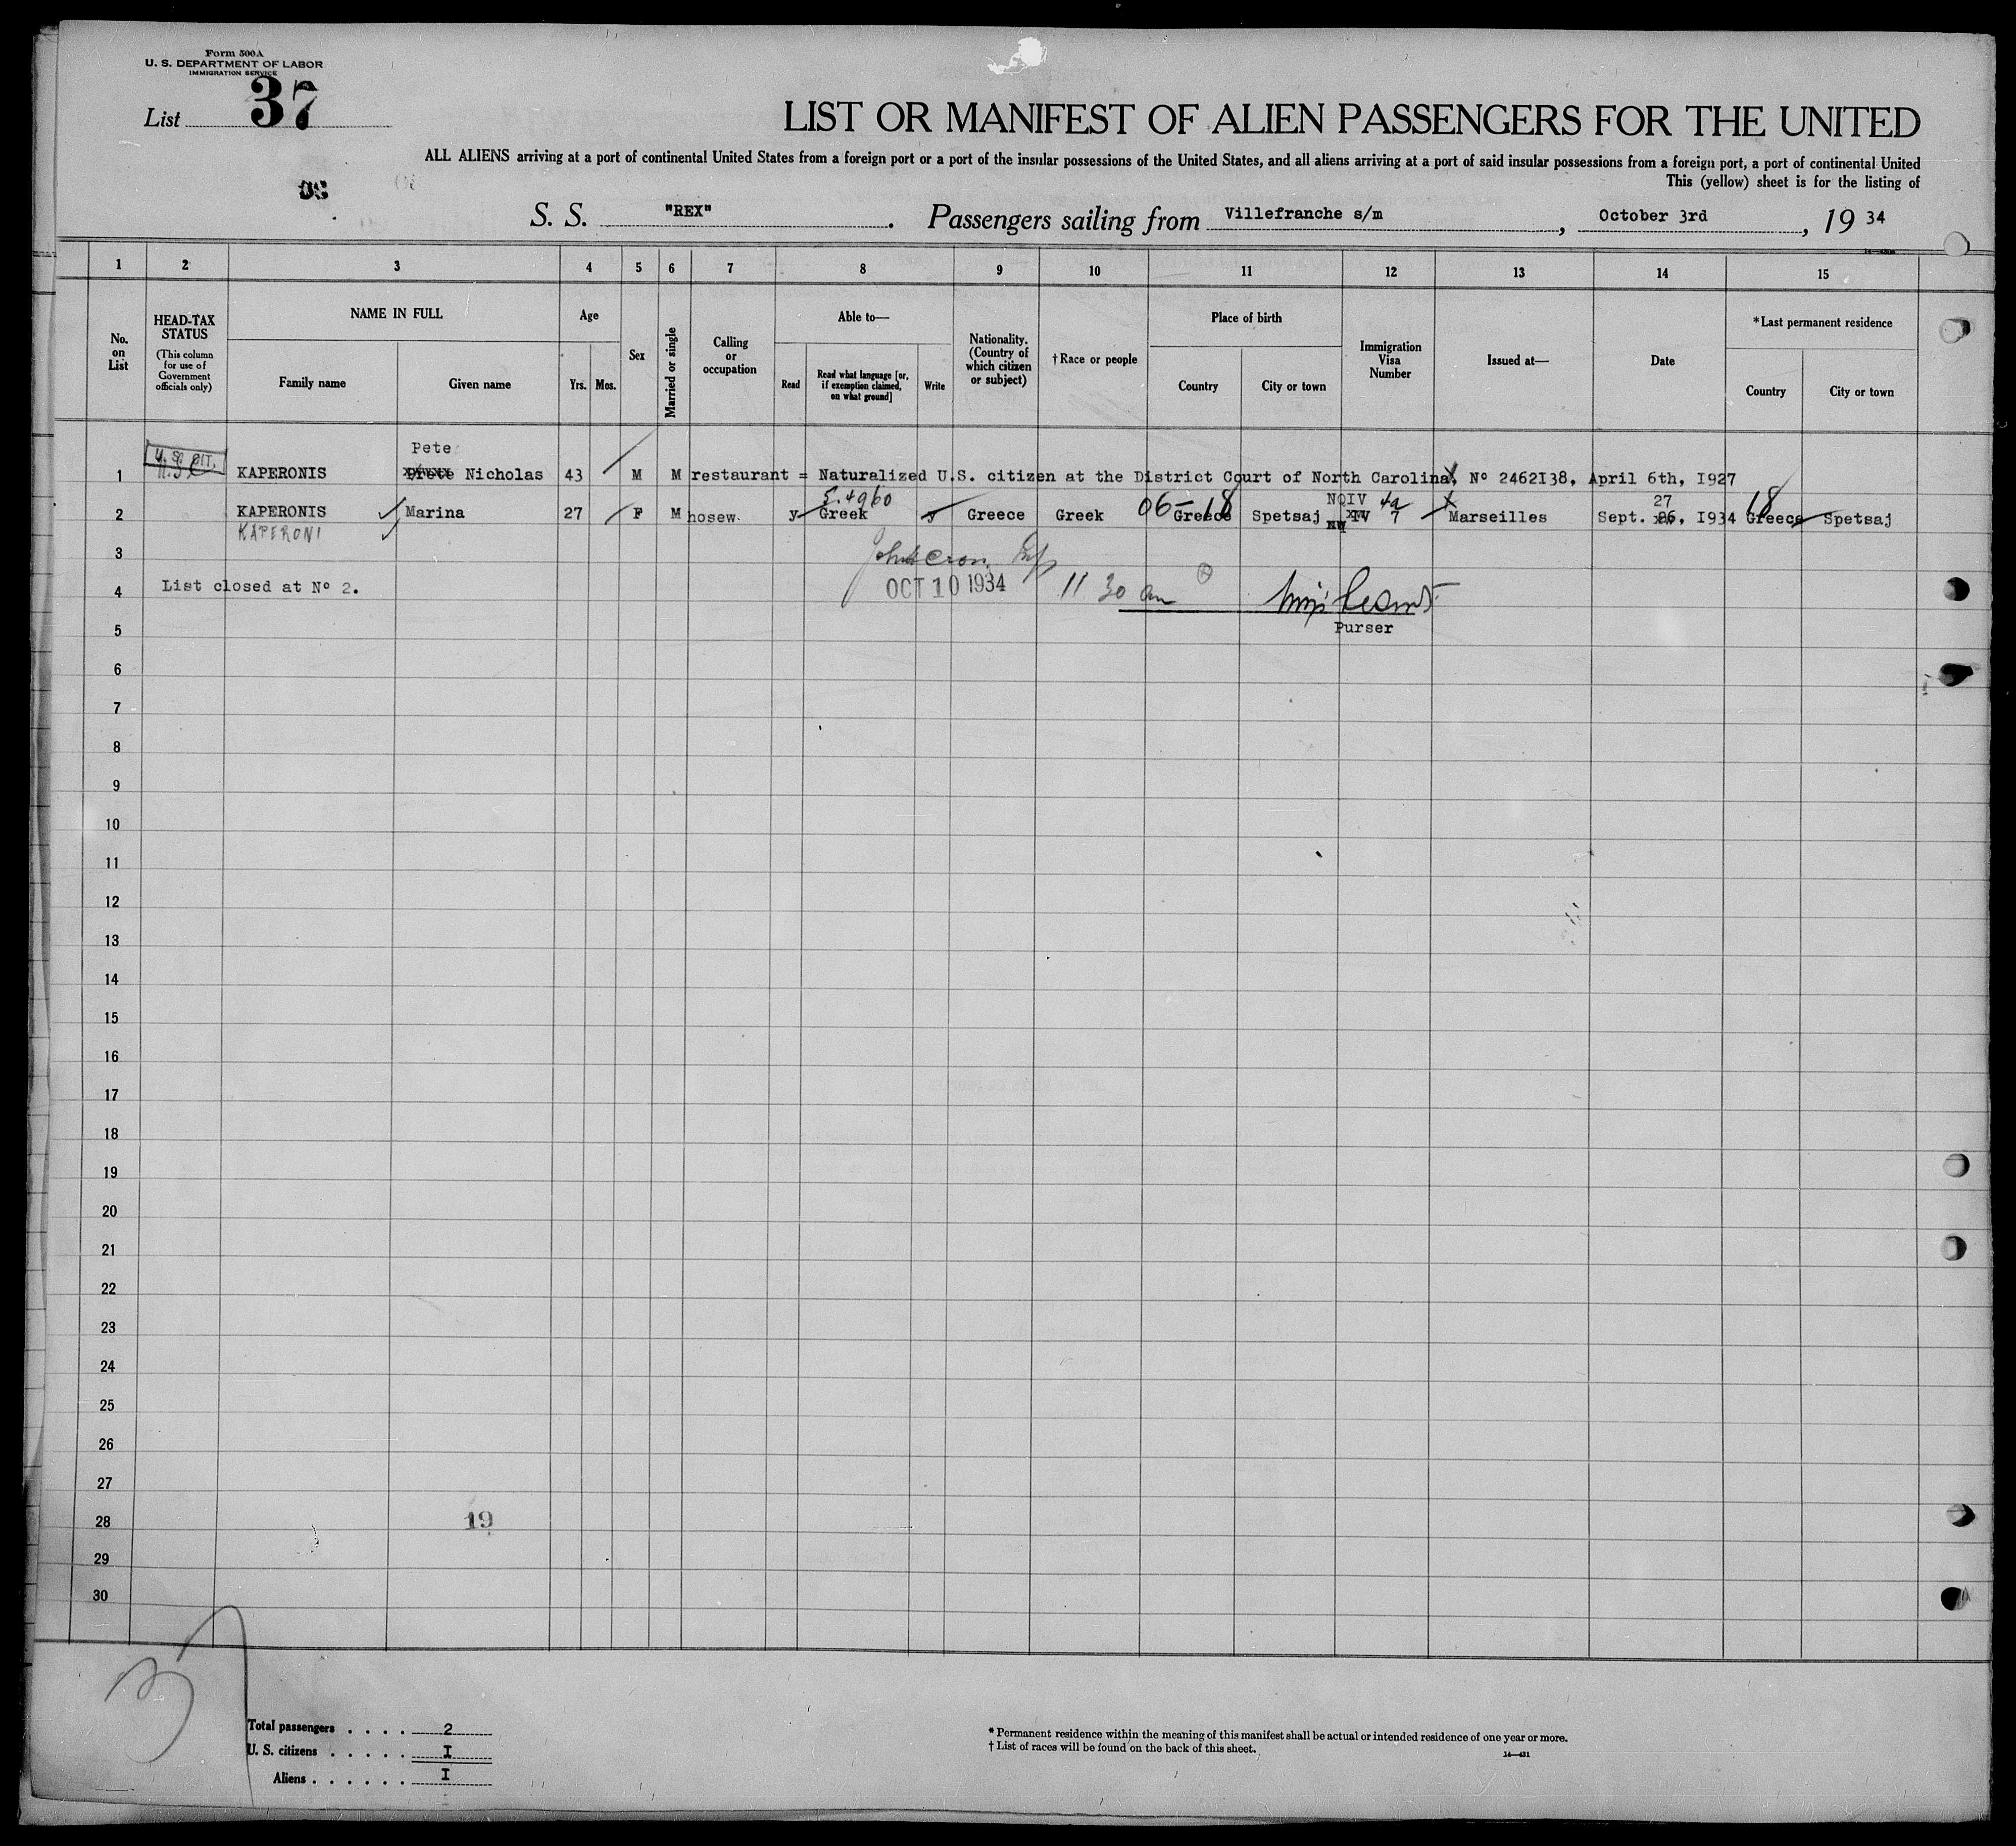 Form 500A
U. S. DEPARTMENT OF LABOR
IMMIGRATION SERVICE
List 37
LIST OR MANIFEST OF ALIEN PASSENGERS FOR THE UNITED
ALL ALIENS arriving at a port of continental United States from a foreign port or a port of the insular possessions of the United States, and all aliens arriving at a port of said insular possessions from a foreign port, a port of continental United
This (yellow) sheet is for the listing of
S. S. "REX". Passengers sailing from Villefranche s/m, October 3rd, 19 34
1 2 3 4 5 6 7 8 9 10 11 12 13 14 15
No. on List
HEAD-TAX STATUS
(This column for use of Government officials only)
NAME IN FULL
Family name
Given name
Age
Yrs.
Mos.
Sex
Married or single
Calling or occupation
Able to—
Read
Read what language [or, if exemption claimed, on what ground]
Write
Nationality. (Country of which citizen or subject)
† Race or people
Place of birth
Country
City or town
Immigration Visa Number
Issued at—
Date
*Last permanent residence
Country
City or town
Pete
1 U. S. CIT. KAPERONIS Nicholas 43 M M restaurant = Naturalized U.S. citizen at the District Court of North Carolina, Nº 2462I38, April 6th, I927
2 KAPERONIS Marina 27 F M hosew. y Greek y Greece Greek 06-18 Greece Spetsaj NQIV IV 7 Marseilles Sept. 27, I934 18 Greece Spetsaj
KAPERONI
3
4 List closed at Nº 2. OCT 10 1934 11 30 am
5 Purser
6
7
8
9
10
11
12
13
14
15
16
17
18
19
20
21
22
23
24
25
26
27
28 19
29
30
37
Total passengers . . . . 2
U. S. citizens . . . . . I
Aliens . . . . . . I
* Permanent residence within the meaning of this manifest shall be actual or intended residence of one year or more.
† List of races will be found on the back of this sheet.
14—431